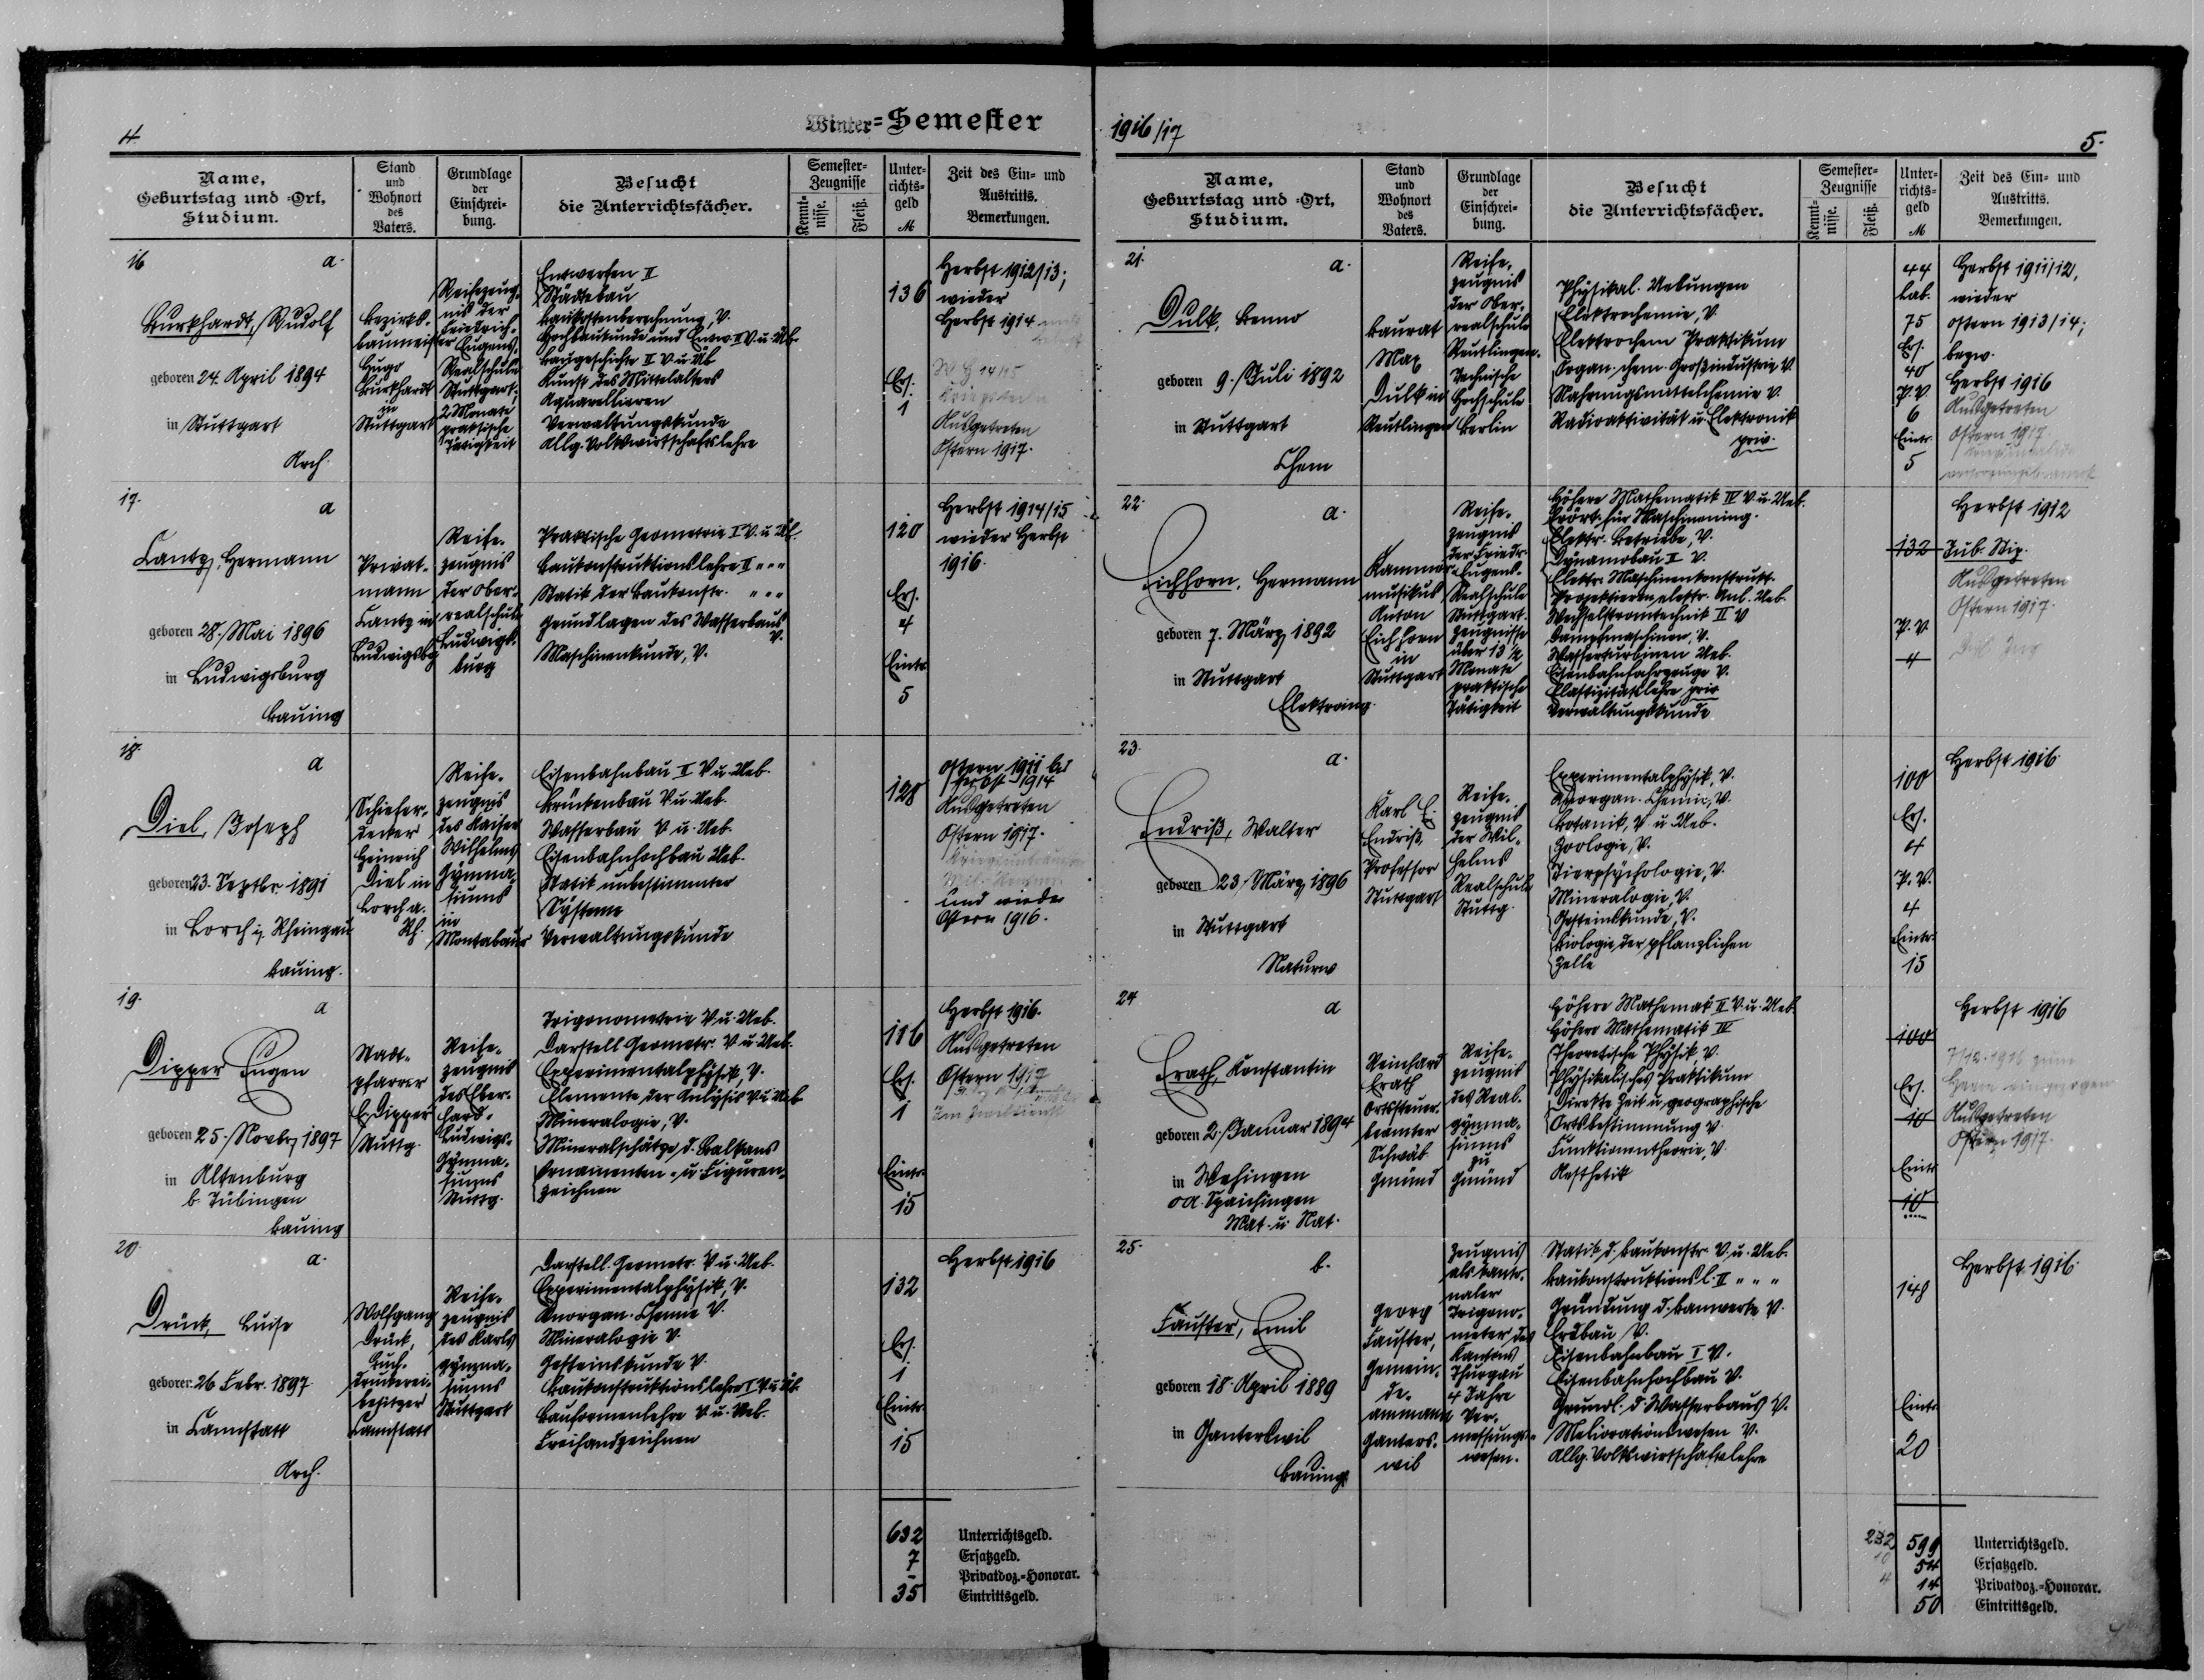 4
Winter-Semester
Name,
Geburtstag und -Ort,
Studium.
Stand
und
Wohnort
des
Vaters.
Grundlage
der
Einschrei-
bung.
Besucht
die Unterrichtsfächer.
Semester-
Zeugnisse
Kennt-
nisse.
Fleiß.
Unter-
richts-
geld
M
Zeit des Ein- und
Austritts.
Bemerkungen.
16
a.
Burkhardt, Rudolf
geboren 24. April 1894
in Stuttgart
Arch.
Bezirks-
baumeister
Hugo
Burkhardt
in
Stuttgart
Reifezeug-
nis der
Friedrich-
Eugens-
Realschule
Stuttgart;
2 Monate
praktische
Tätigkeit
Entwerfen II
Städtebau
Baukostenberechnung, V.
Hochbaukunde und Entw. II V. u. Üb.
Baugeschichte II V. u. Üb.
Kunst des Mittelalters
Aquarellieren
Verwaltungskunde
Allg. Volkswirtschaftslehre
136
Ers.
1
Herbst 1912/13;
wieder
Herbst 1914
W H 14/15
Ausgetreten
Ostern 1917.
17.
a
Cantz, Hermann
geboren 28. Mai 1896
in Ludwigsburg
Bauing
Privat-
mann
Cantz in
Ludwigsbg
Reife-
zeugnis
der Ober-
realschule
Ludwigs-
burg
Praktische Geometrie I V. u. Üb.
Baukonstruktionslehre II " " "
Statik der Baukonstr. " " "
Grundlagen des Wasserbaus
V.
Maschinenkunde, V.
120
Ers.
4
Eintr.
5
Herbst 1914/15
wieder Herbst
1916.
18.
a
Diel, Joseph
geboren 23. Septbr. 1891
in Lorch i. Rheingau
Bauing.
Schiefer-
decker
Heinrich
Diel in
Lorch a.
Rh.
Reife-
zeugnis
des Kaiser
Wilhelms
Gymna-
siums
in
Montabaur
Eisenbahnbau II V. u. Ueb.
Brückenbau V. u. Ueb.
Wasserbau V. u. Ueb.
Eisenbahnhochbau Ueb.
Statik unbestimmter
Systeme
Verwaltungskunde
128
Ostern 1911 bis
Herbst 1914
Ausgetreten
Ostern 1917.
und wieder
Ostern 1916.
19.
a
Dipper Eugen
geboren 25. Novbr. 1897
in Altenburg
b. Tübingen
Bauing
Stadt-
pfarrer
E. Dipper
Stuttg.
Reife-
zeugnis
des Eber-
hard-
Ludwigs-
Gymna-
siums
Stuttg.
Trigonometrie V. u. Ueb.
Darstell. Geometr. V. u. Ueb.
Experimentalphysik, V.
Elemente der Anlysis V. u. Ueb
Mineralogie, V.
Mineralschätze d. Balkans
Ornamenten- u. Figuren-
zeichnen
116
Ers.
1
Eintr.
15
Herbst 1916.
Ausgetreten
Ostern 1917
20.
a.
Drück, Luise
geboren 26 Febr. 1897
in Cannstatt
Arch.
Wolfgang
Drück,
Buch-
druckerei-
besitzer
Cannstatt
Reife-
zeugnis
des Karls
gymna-
siums
Stuttgart
Darstell. Geometr. V. u. Ueb.
Experimentalphysik, V.
Anorgan. Chemie V.
Mineralogie V.
Gesteinskunde V.
Baukonstruktionslehre I V. u. Üb.
Bauformenlehre V. u. Ueb.
Freihandzeichnen
132
Ers.
1
Eintr.
15
Herbst 1916
632 Unterrichtsgeld.
7 Ersatzgeld.
- Privatdoz.-Honorar.
35 Eintrittsgeld.
1916/17
5.
Name,
Geburtstag und -Ort,
Studium.
Stand
und
Wohnort
des
Vaters.
Grundlage
der
Einschrei-
bung.
Besucht
die Unterrichtsfächer.
Semester-
Zeugnisse
Kennt-
nisse.
Fleiß.
Unter-
richts-
geld
M
Zeit des Ein- und
Austritts.
Bemerkungen.
21.
a.
Dulk, Benno
geboren 9. Juli 1892
in Stuttgart
Chem
Baurat
Max
Dulk in
Reutlingen
Reife-
zeugnis
der Ober-
realschule
Reutlingen.
Technische
Hochschule
Berlin
Physikal. Uebungen
Elektrochemie, V.
Elektrochem. Praktikum
Organ. chem. Großindustrie V.
Nahrungsmittelchemie V.
Radioaktivität u. Elektronik
priv.
44
Lab.
75
Ers.
40
P. V.
6
Eintr.
5
Herbst 1911/12,
wieder
Ostern 1913/14;
bezw.
Herbst 1916
Ausgetreten
Ostern 1917.
22.
a.
Eichhorn, Hermann
geboren 7. März 1892
in Stuttgart
Elektroing.
Kammer-
musikus
Anton
Eichhorn
in
Stuttgart
Reife-
zeugnis
der Friedr.
Eugens-
Realschule
Stuttgart.
Zeugnisse
über 13 ½
Monate
praktische
Tätigkeit
Höhere Mathematik IV V. u. Ueb.
Erört. für Maschinening.
Elektr. Betriebe, V.
Dynamobau II V.
Elektr. Maschinenkonstrukt.
Projektieren elektr. Anl. Ueb.
Wechselstromtechnik II V
Dampfmaschinen, V.
Wasserturbinen Ueb.
Eisenbahnfahrzeuge V.
Elastizitätslehre priv
Verwaltungskunde
132
P. V.
4
Herbst 1912
Jub. Stip.
Ausgetreten
Ostern 1917.
Dipl. Ing
23.
a.
Endriß, Walter
geboren 23. März 1896
in Stuttgart
Naturw
Karl E.
Endriß,
Professor
Stuttgart
Reife-
zeugnis
der Wil-
helms
Realschule
Stuttg.
Experimentalphysik, V.
Anorgan. Chemie, V.
Botanik, V. u. Ueb.
Zoologie, V.
Tierpsychologie, V.
Mineralogie, V.
Gesteinskunde, V.
Biologie der pflanzlichen
Zelle
100
Ers.
4
P. V.
4
Eintr.
15
Herbst 1916.
24
a
Erath, Konstantin
geboren 2. Januar 1894
in Wehingen
OA. Spaichingen
Mat. u. Nat.
Reinhard
Erath
Ortssteuer-
beamter
Schwäb
Gmünd
Reife-
zeugnis
des Real-
gymna-
siums
zu
Gmünd
Höhere Mathemat. II V. u. Ueb.
Höhere Mathematik IV
Theoretische Physik, V.
Physikalisches Praktikum
Direkte Zeit u. geographische
Ortsbestimmung V.
Funktionentheorie, V.
Aesthetik
100
Ers.
10
Eintr
10
Herbst 1916
7/12. 1916 zum
Heere eingezogen
Ausgetreten
Ostern 1917.
25.
b.
Fauster, Emil
geboren 18. April 1889
in Ganterswil
Bauing.
Georg
Fauster,
Gemein-
de-
ammann
Ganters-
wil
Zeugnis
als kanto-
naler
Trigono-
meter des
Kantons
Thurgau
4 Jahre
Ver-
messungs-
wesen.
Statik d. Baukonstr. V. u. Ueb.
Baukonstruktionsl. II " " "
Gründung d. Bauwerke V.
Erdbau V.
Eisenbahnbau I V.
Eisenbahnhochbau V.
Grundl. d. Wasserbaus V.
Meliorationswesen V.
Allg. Volkswirtschaftslehre
148
Eintr
20
Herbst 1916.
232 599 Unterrichtsgeld.
10 54 Ersatzgeld.
4 14 Privatdoz.-Honorar.
50 Eintrittsgeld.